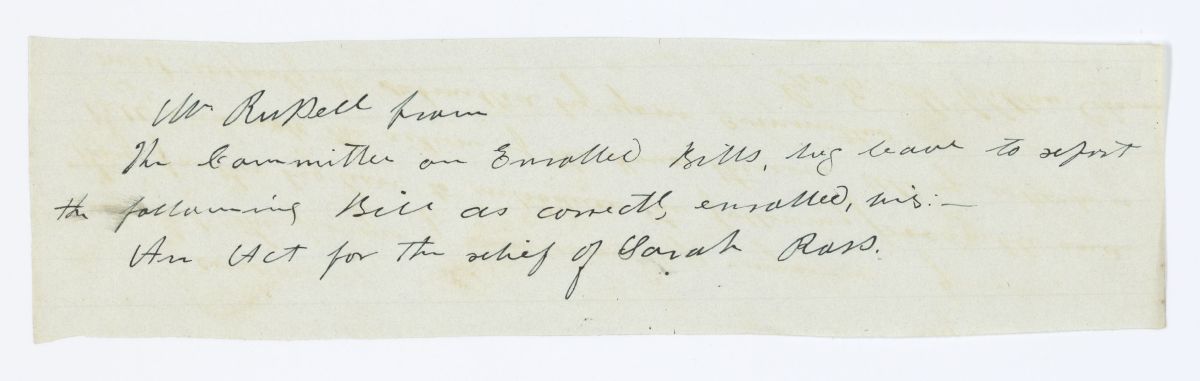 Mr Russell from
The Committee on Enrolled Bills, beg leave to report
the following Bill as correctly enrolled, viz:—
An Act for the relief of Sarah Ross.